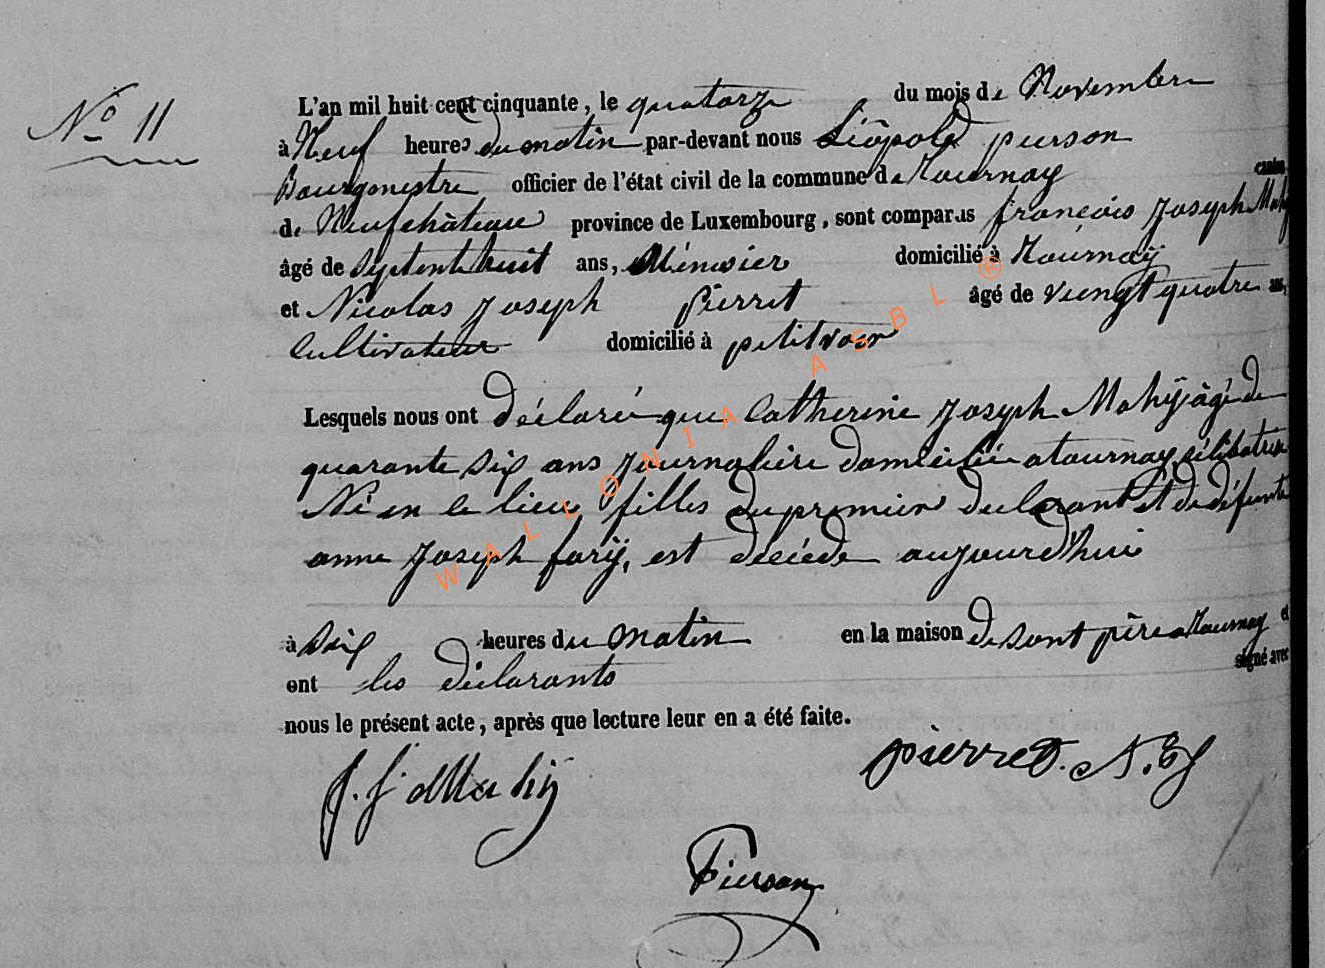 N° 11
L'an mil huit cent cinquante, le quatorze du mois de Novembre
à Neuf heures du matin par-devant nous Léopold pierson
Bourgmestre officier de l'état civil de la commune de Tournay canton
de Neufchâteau province de Luxembourg, sont comparus françois Joseph Mahy
âgé de septente huit ans, Ménusier domicilié à Tournaÿ
et Nicolas Joseph Pierret âgé de viengt quatre ans,
Cultivateur domicilié à petitvoir
Lesquels nous ont déclaré que Catherine Joseph Mahÿ âgé de
quarante six ans Journalière domiciliée a tournay, célibatrice
Né en ce lieu filles du premier declarant et de défunte
anne Joseph forÿ, est décédé aujourd'hui
à Six heures du matin en la maison de sont père a Tournay et
ont les déclarants signé avec
nous le présent acte, après que lecture leur en a été faite.
f. j. Mahÿ
pierret. N. J
Pierson
WALLONIA ASBL ®